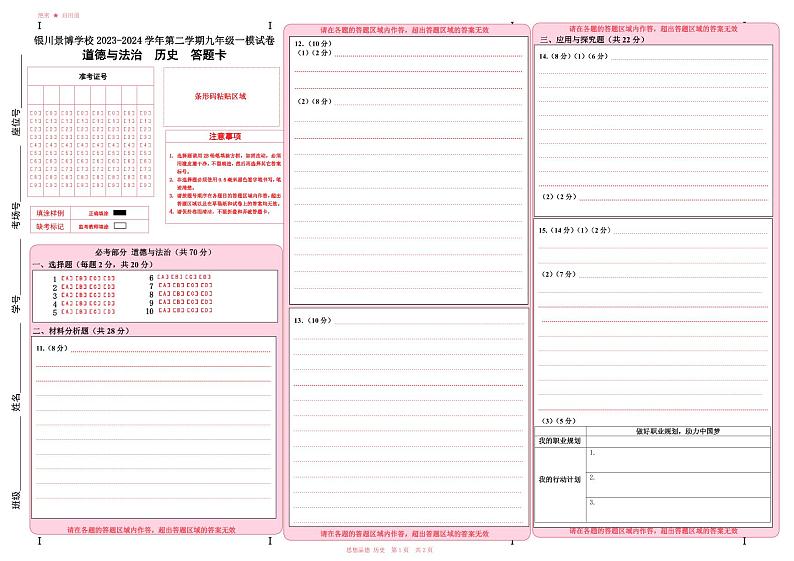 绝密 ★ 启用前
银川景博学校 2023-2024 学年第二学期九年级一模试卷
道德与法治 历史 答题卡
准考证号
[0] [0] [0] [0] [0] [0] [0] [0]
[1] [1] [1] [1] [1] [1] [1] [1]
[2] [2] [2] [2] [2] [2] [2] [2]
[3] [3] [3] [3] [3] [3] [3] [3]
[4] [4] [4] [4] [4] [4] [4] [4]
[5] [5] [5] [5] [5] [5] [5] [5]
[6] [6] [6] [6] [6] [6] [6] [6]
[7] [7] [7] [7] [7] [7] [7] [7]
[8] [8] [8] [8] [8] [8] [8] [8]
[9] [9] [9] [9] [9] [9] [9] [9]
条形码粘贴区域
注意事项
1. 选择题请用2B铅笔填涂方框，如需改动，必须
用橡皮擦干净，不留痕迹，然后再选择其它答案
标号。
2. 非选择题必须使用0.5毫米黑色签字笔书写，笔
迹清楚。
3. 请按题号顺序在各题目的答题区域内作答，超出
答题区域以及在草稿纸和试卷上的答案均无效。
4. 请保持卷面清洁，不要折叠和弄破答题卡。
填涂样例 正确填涂
缺考标记 监考教师填涂
座位号
考场号
学号
姓名
班级
必考部分 道德与法治（共 70 分）
一、选择题（每题 2 分，共 20 分）
1 [A] [B] [C] [D] 6 [A] [B] [C] [D]
2 [A] [B] [C] [D] 7 [A] [B] [C] [D]
3 [A] [B] [C] [D] 8 [A] [B] [C] [D]
4 [A] [B] [C] [D] 9 [A] [B] [C] [D]
5 [A] [B] [C] [D] 10 [A] [B] [C] [D]
二、材料分析题（共 28 分）
11.（8 分）
请在各题的答题区域内作答，超出答题区域的答案无效
请在各题的答题区域内作答，超出答题区域的答案无效
12.（10 分）
（1）（2 分）
（2）（8 分）
13.（10 分）
请在各题的答题区域内作答，超出答题区域的答案无效
请在各题的答题区域内作答，超出答题区域的答案无效
三、应用与探究题（共 22 分）
14.（8 分）（1）（6 分）
（2）（2 分）
15.（14 分）（1）（2 分）
（2）（7 分）
（3）（5 分）
做好职业规划，助力中国梦
我的职业规划
我的行动计划
1.
2.
3.
请在各题的答题区域内作答，超出答题区域的答案无效
思想品德 历史 第 1 页 共 2 页